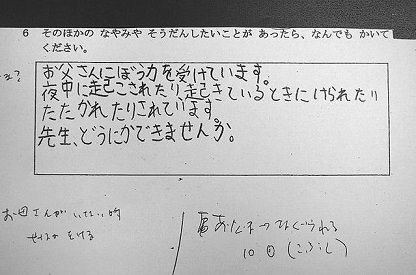 6 そのほかの なやみや そうだんしたいことが あったら、なんでも かいて
ください。
お父さんにぼう力を受けています。
夜中に起こされたり、起きているときにけられたり
たたかれたりされています。
先生、どうにかできませんか。
お母さんがいない的
あたまつなぐられる
10回(こぶし)